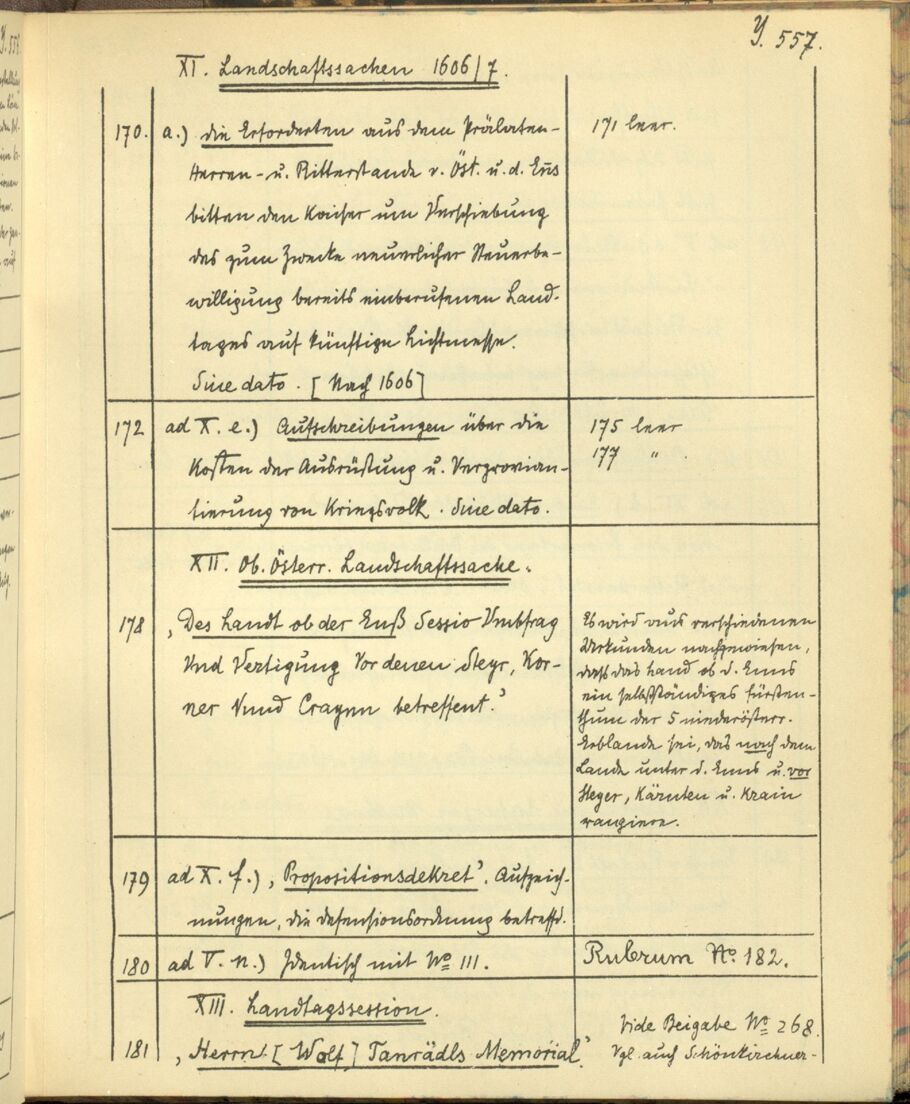 Y. 557.
XI. Landschaftssachen 1606/7.
170. a.) die Erforderten aus dem Prälaten-
Herren- u. Ritterstande v. Öst. u. d. Ens
bitten den Kaiser um Verschiebung
des zum Zwecke neuerlicher Steuerbe-
willigung bereits einberufenen Land-
tages auf künftige Lichtmesse.
Sine dato. [Nach 1606]
171 leer.
172 ad X. e.) Aufschreibungen über die
Kosten der Ausrüstung u. Verprovian-
tierung von Kriegsvolk. Sine dato.
175 leer
177 "
XII. Ob. Österr. Landschaftssache.
178 „Des Landt ob der Enß Sessio Vmbfrag
Vnd Vertigung Vor denen Steyr, Kor-
ner Vnnd Craynn betreffent."
Es wird aus verschiedenen
Urkunden nachgewiesen,
dass das Land ob d. Enns
ein selbstständiges Fürsten-
thum der 5 niederösterr.
Erblande sei, das nach dem
Lande unter d. Enns u. vor
Steyer, Kärnten u. Krain
rangiere.
179 ad X. f.) „Propositionsdekret". Aufzeich-
nungen, die Defensionsordnung betreffd.
180 ad V. n.) Identisch mit No III.
Rubrum No. 182.
XIII. Landtagssession.
181 „Herrn [Wolf] Tanrädls Memorial"
Vide Beigabe No 268.
Vgl. auch Schönkirchner-